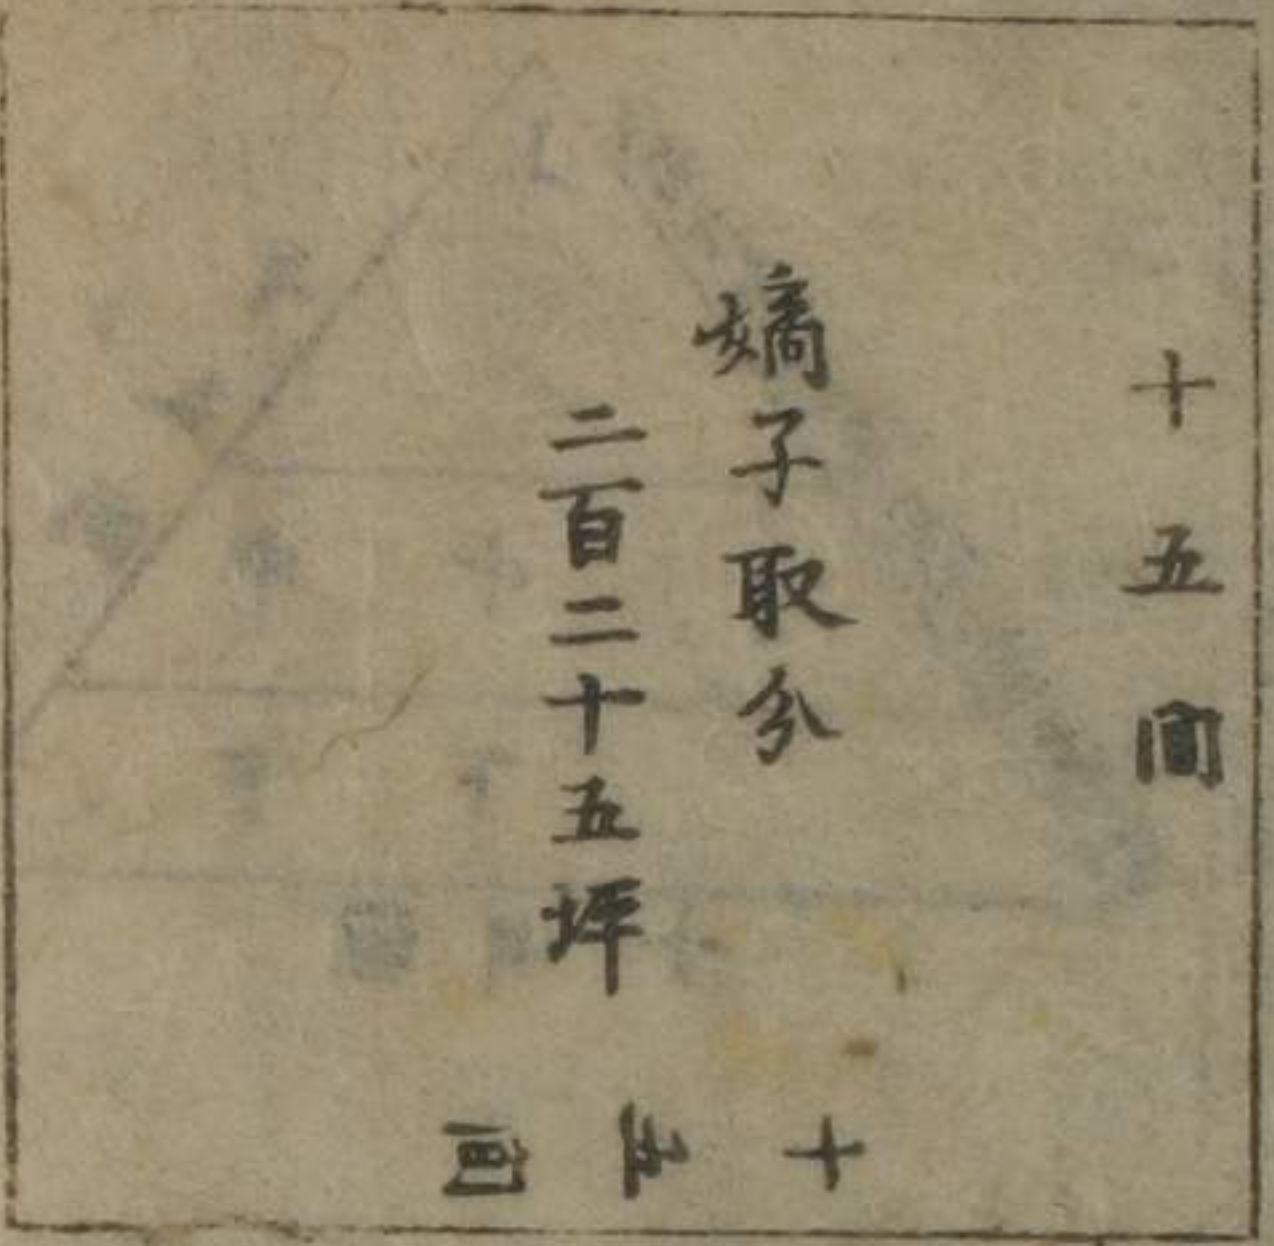 十五間
嫡子取分
二百二十五坪
十五間